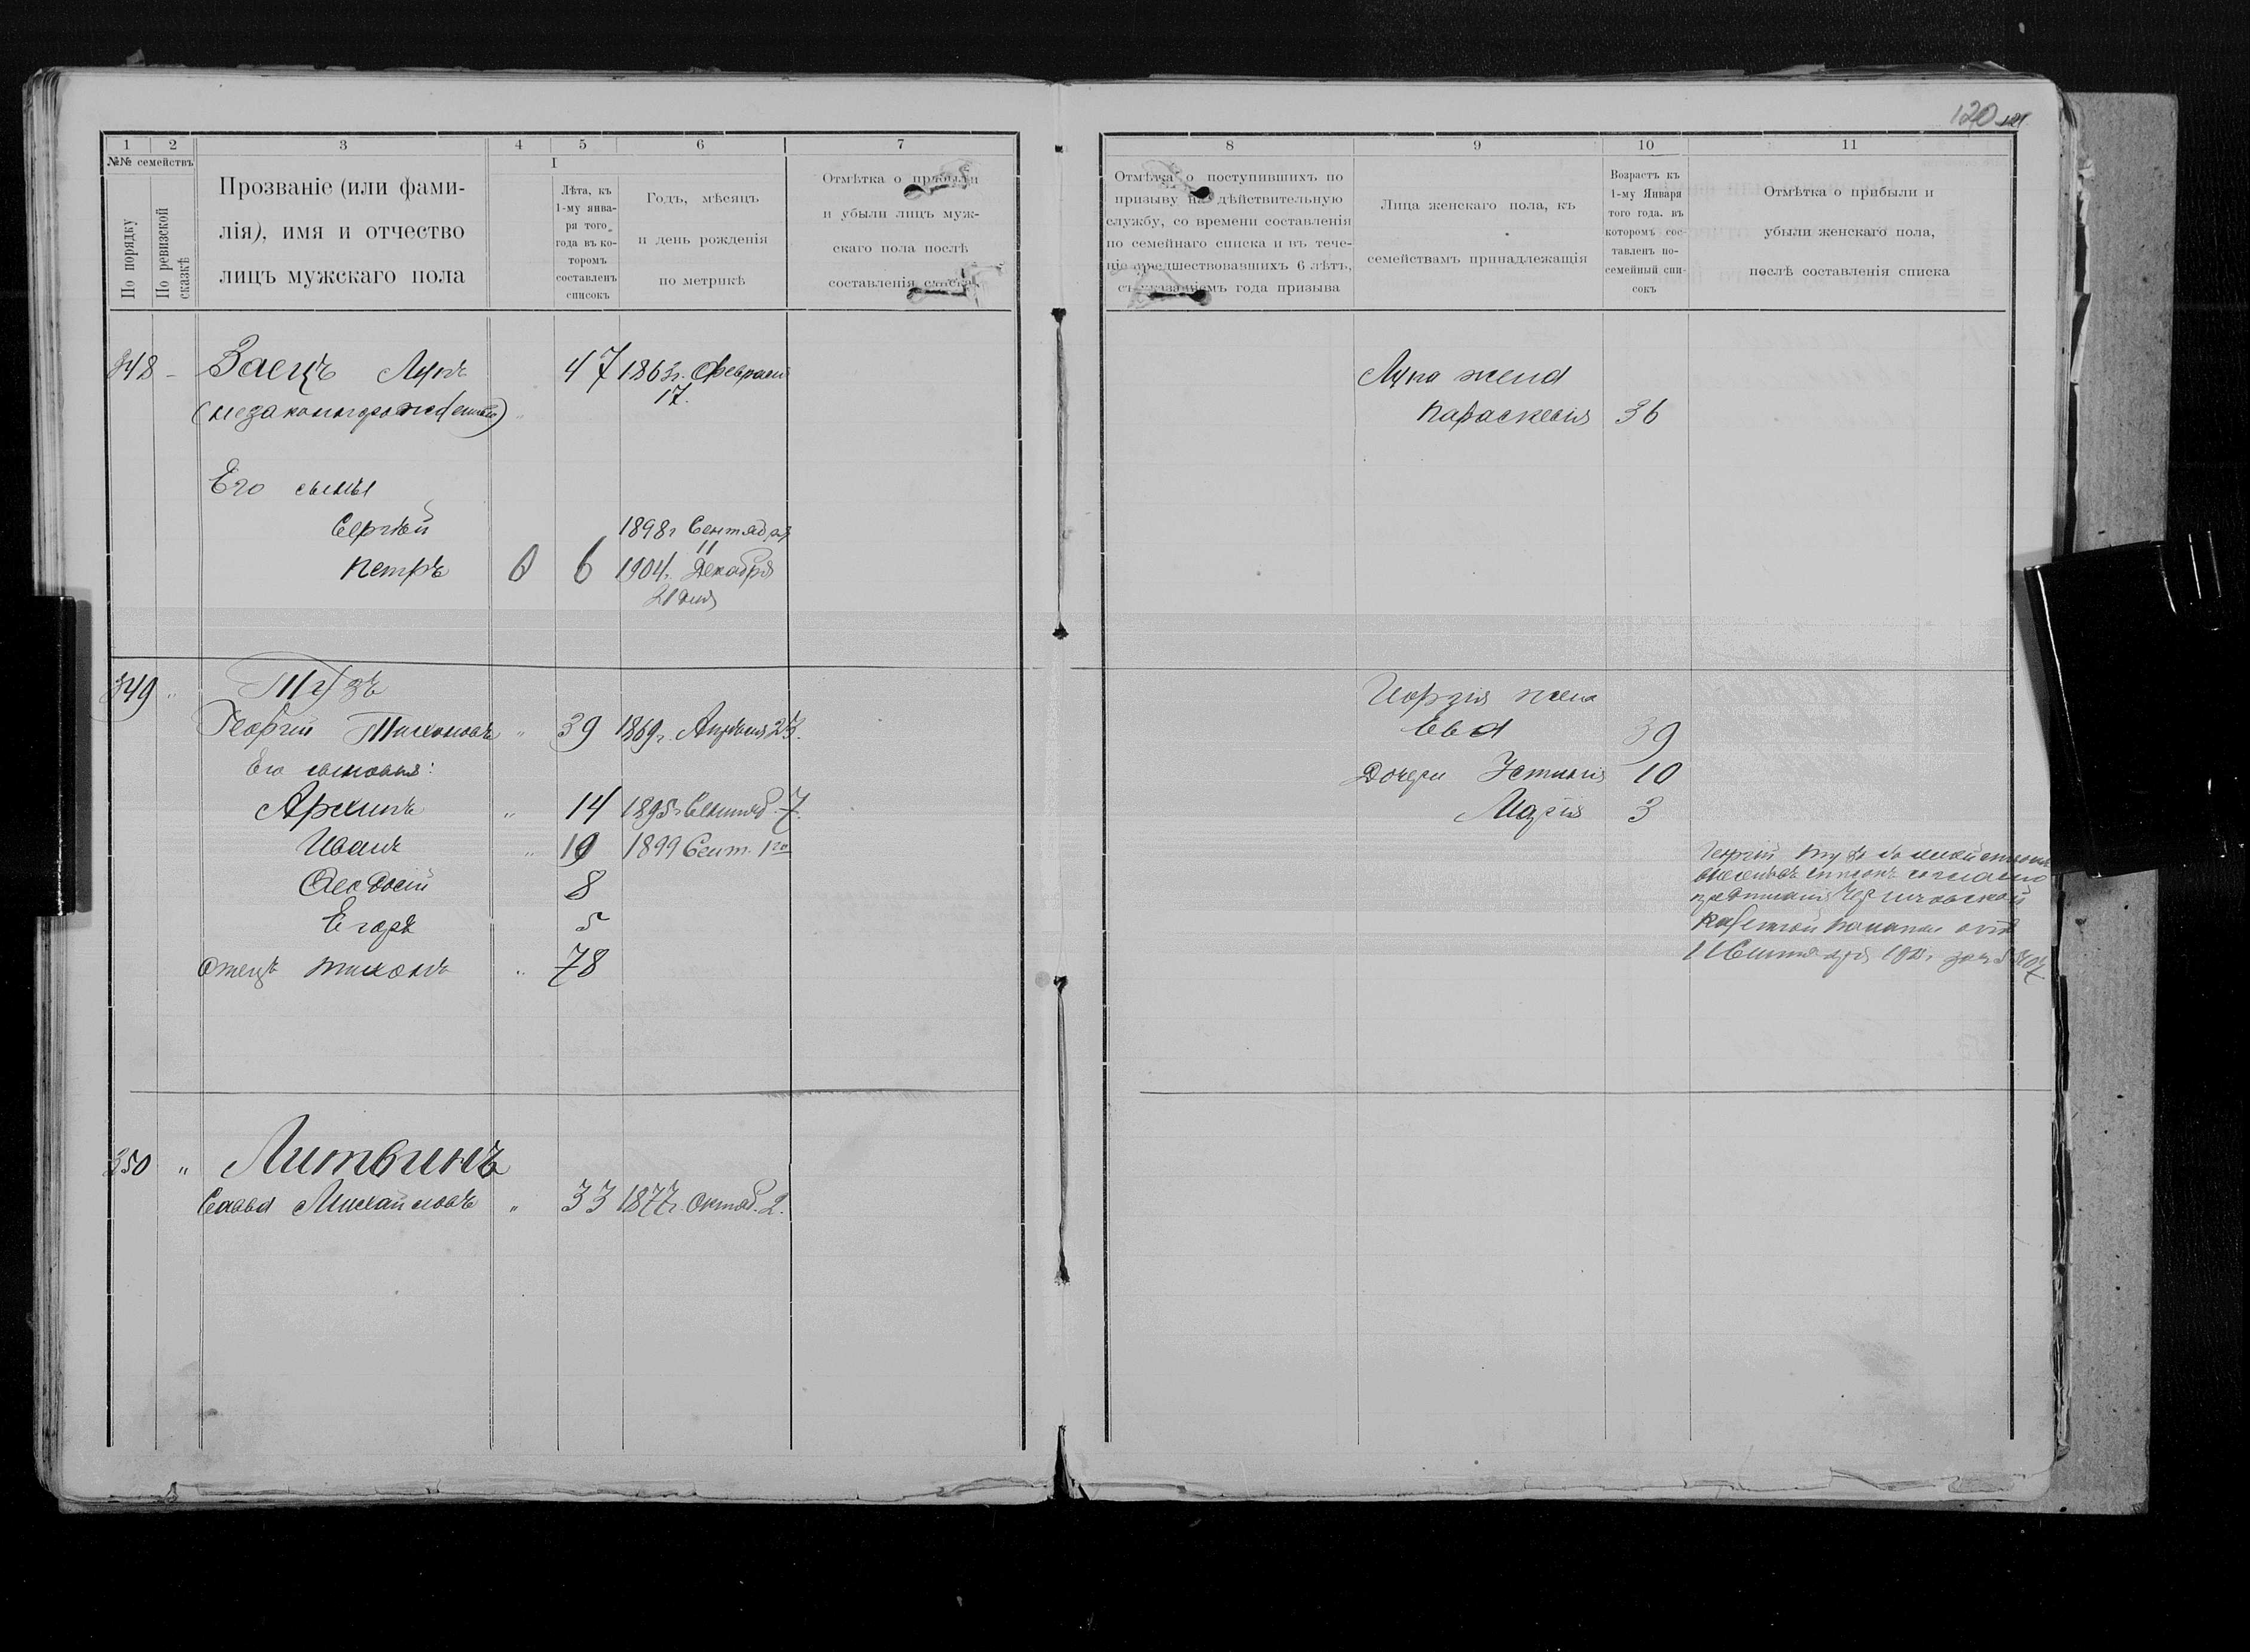 120 121
1 2 3 4 5 6 7
№№ семействъ
I
По порядку
По ревизской сказкѣ
Прозваніе (или фами-
лія), имя и отчество
лицъ мужскаго пола
Лѣта, къ
1-му янва-
ря того
года въ ко-
торомъ
составленъ
списокъ
Годъ, мѣсяцъ
и день рожденія
по метрикѣ
Отмѣтка о прибыли
и убыли лицъ муж-
скаго пола послѣ
составленія списка
348 - Заецъ Лука 47 1863г. Февраля
17.
(незаконнорожденный)
Его сыны
Сергѣй 1898г Сентября
11
Петръ 0 6 1904г. Декабря
21 дня
349 " Тузъ
Георгій Тихоновъ " 39 1869г. Апрѣля 23.
Его сыновья:
Архипъ " 14 1895г Сентяб. 7.
Иванъ " 10 1899 Сент. 1го
Ѳеодосій 8
Егоръ 5
Отецъ Тихонъ " 78
350 " Литвинъ
Савва Михайловъ " 33 1877г. Октяб. 2.
8 9 10 11
Отмѣтка о поступившихъ по
призыву на дѣйствительную
службу, со времени составленія
по семейнаго списка и въ тече-
ніе предшествовавшихъ 6 лѣтъ,
съ указаніемъ года призыва
Лица женскаго пола, къ
семействамъ принадлежащія
Возрастъ къ
1-му Января
того года. въ
которомъ сос-
тавленъ по-
семейный спи-
сокъ
Отмѣтка о прибыли и
убыли женскаго пола,
послѣ составленія списка
Лука жена
Параскевія 36
жена
Ева 39
Дочери Устинія 10
Марія 3
Георгій Тузъ
списокъ согласно
предписанія Черниговской
Казенной Палаты отъ
11 Сентября